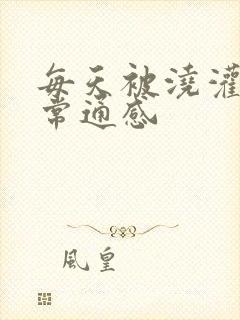 每天被澆灌
常通感
風皇